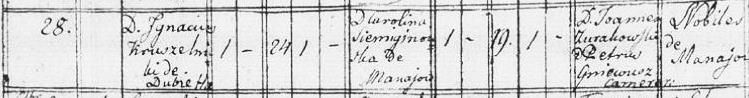 28.
D. Ignacius
Kruszelni
ki de
Dubie
1 - 24 1 -
D Karolina
Siemigino
ska De
Manajow
1 - 19. 1 -
D. Joannes
Zurakowski
D Petrus
Gniewosz
Camerar:
Nobiles
de
Manajow